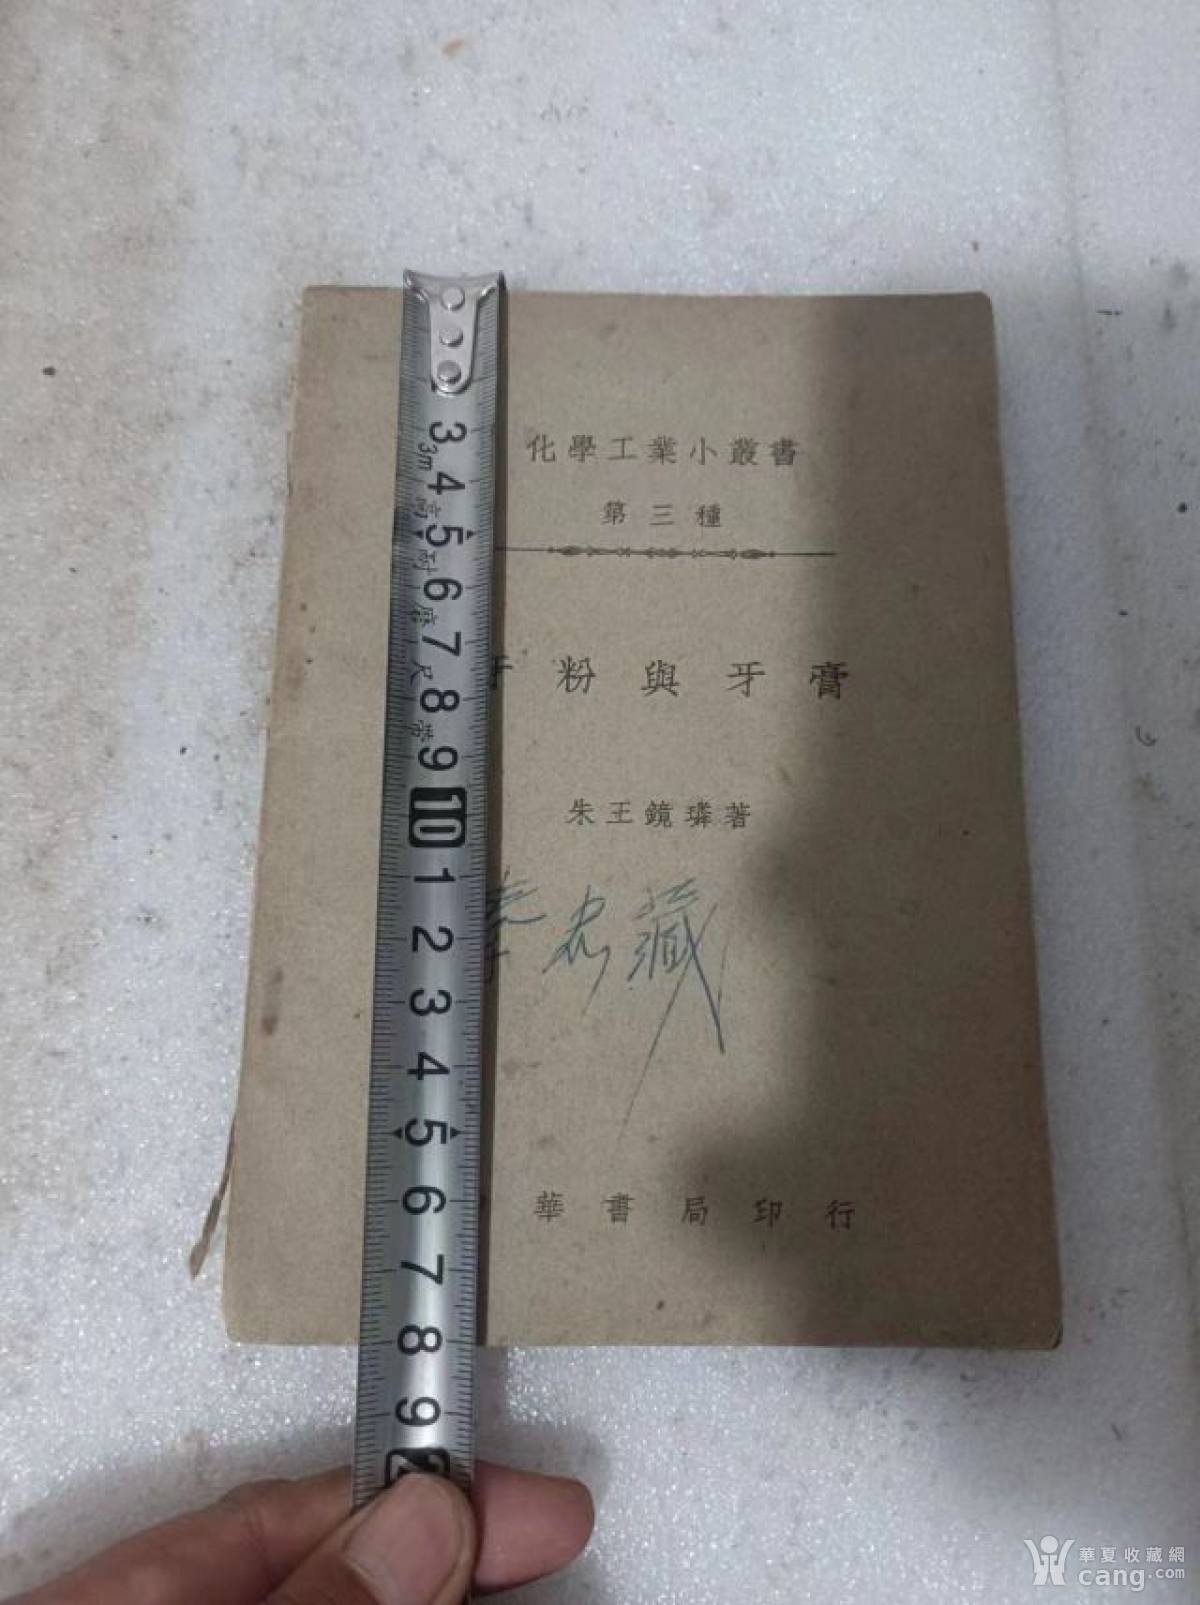 化學工業小叢書
第三種
牙粉與牙膏
朱王鏡璘著
藏
華書局印行
3
3m
4
高
5
耐
6
磨
7
尺
8
帶
9
10
1
2
3
4
5
6
7
8
9
2
華夏收藏網
cang.com